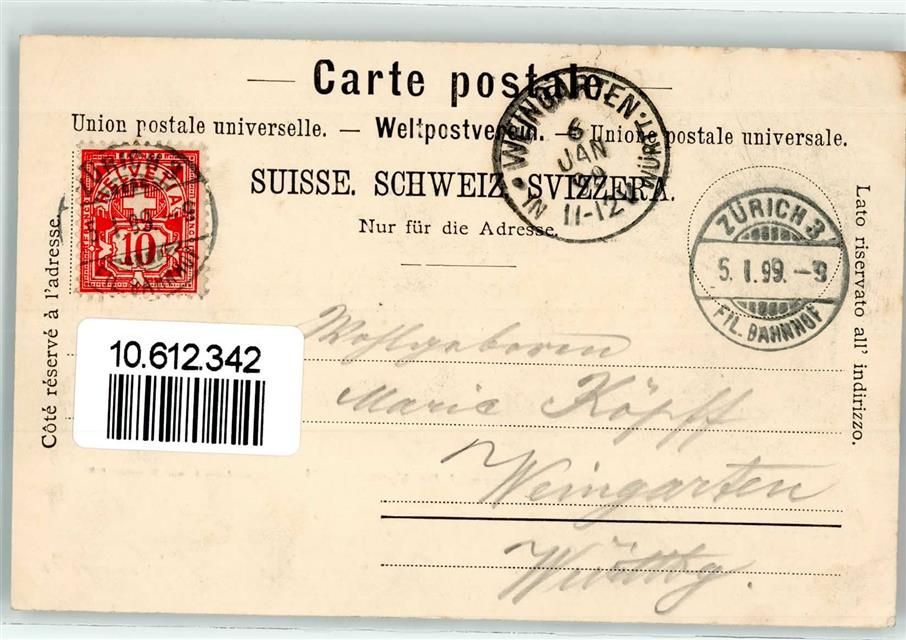 Carte postale
Union postale universelle. — Weltpostverein. — Unione postale universale.
SUISSE. SCHWEIZ. SVIZZERA.
Nur für die Adresse.
Côté réservé à l'adresse.
Lato riservato all' indirizzo.
HELVETIA
10
WEINGARTEN
6
JAN
99
11-12
ZÜRICH 3
5. I. 99. - 9
FIL. BAHNHOF
10.612.342
Wohlgeboren
Marie Köpff
Weingarten
Württbg.